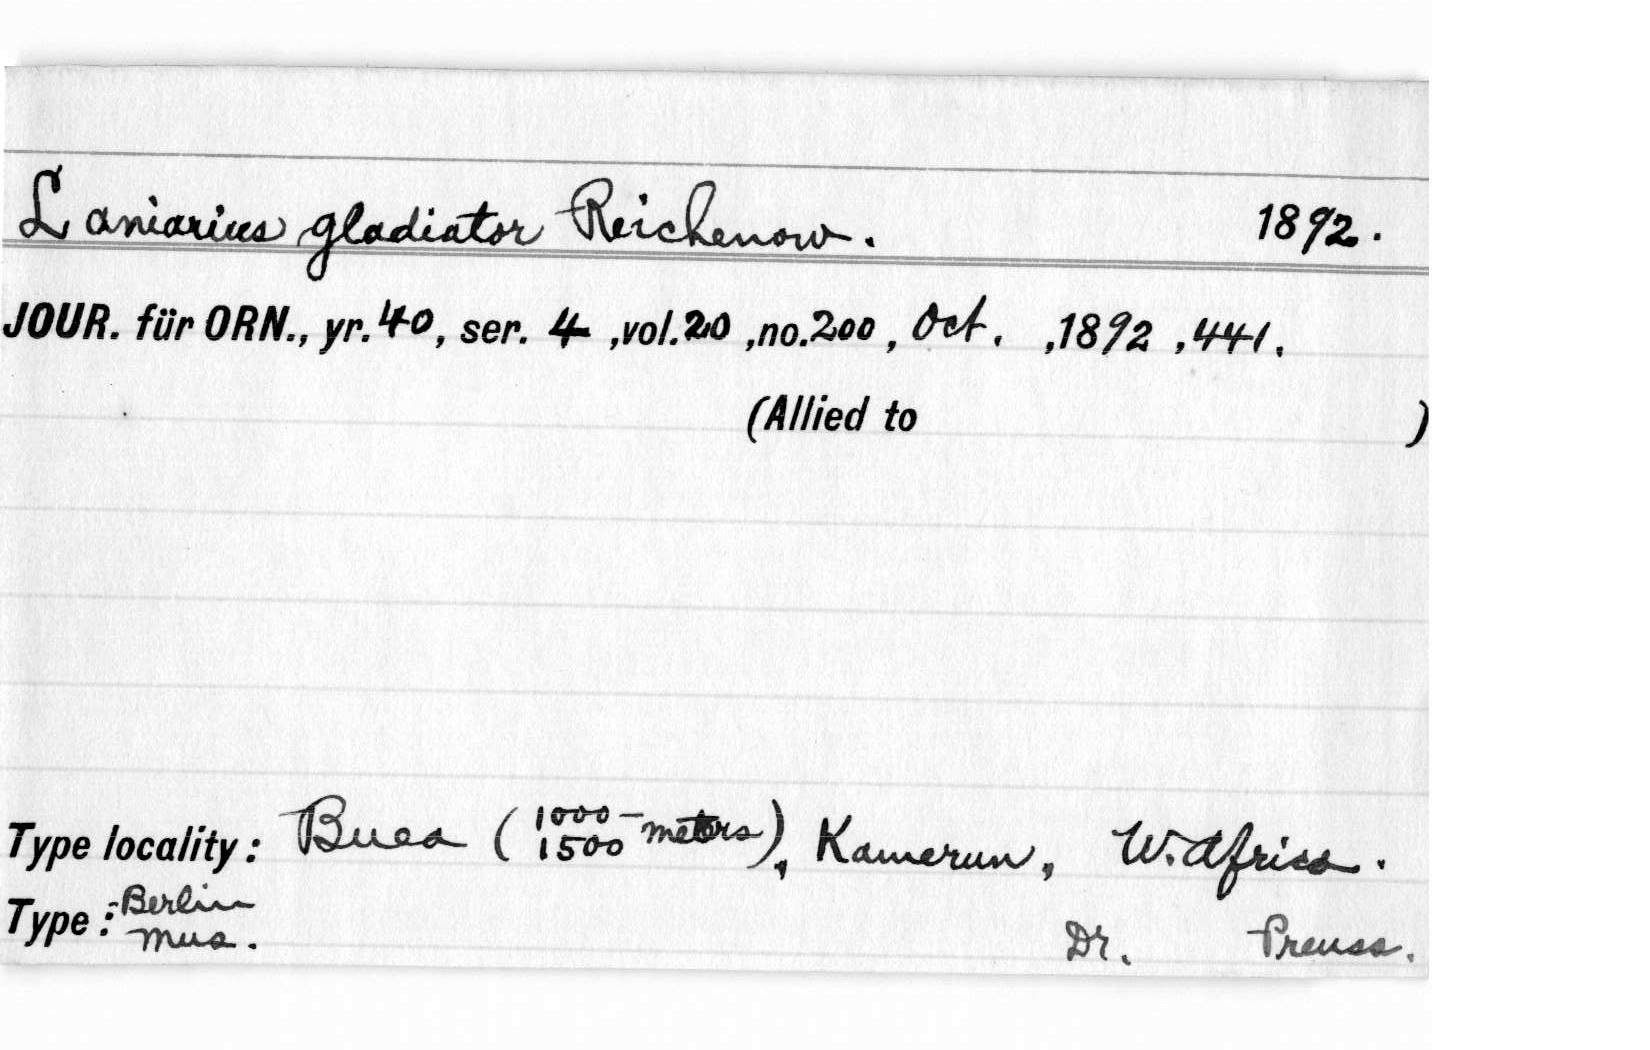 Laniarius gladiator Reichenow. 1892.
JOUR. für ORN., yr. 40, ser. 4, vol. 20, no. 200, Oct., 1892, 441.
(Allied to )
Type locality: Buea (1000–1500 meters), Kamerun, W. Africa.
Type: Berlin Mus. Dr. Preuss.